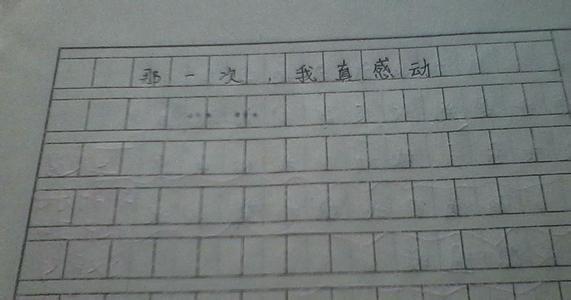 那一次,我真感动
……